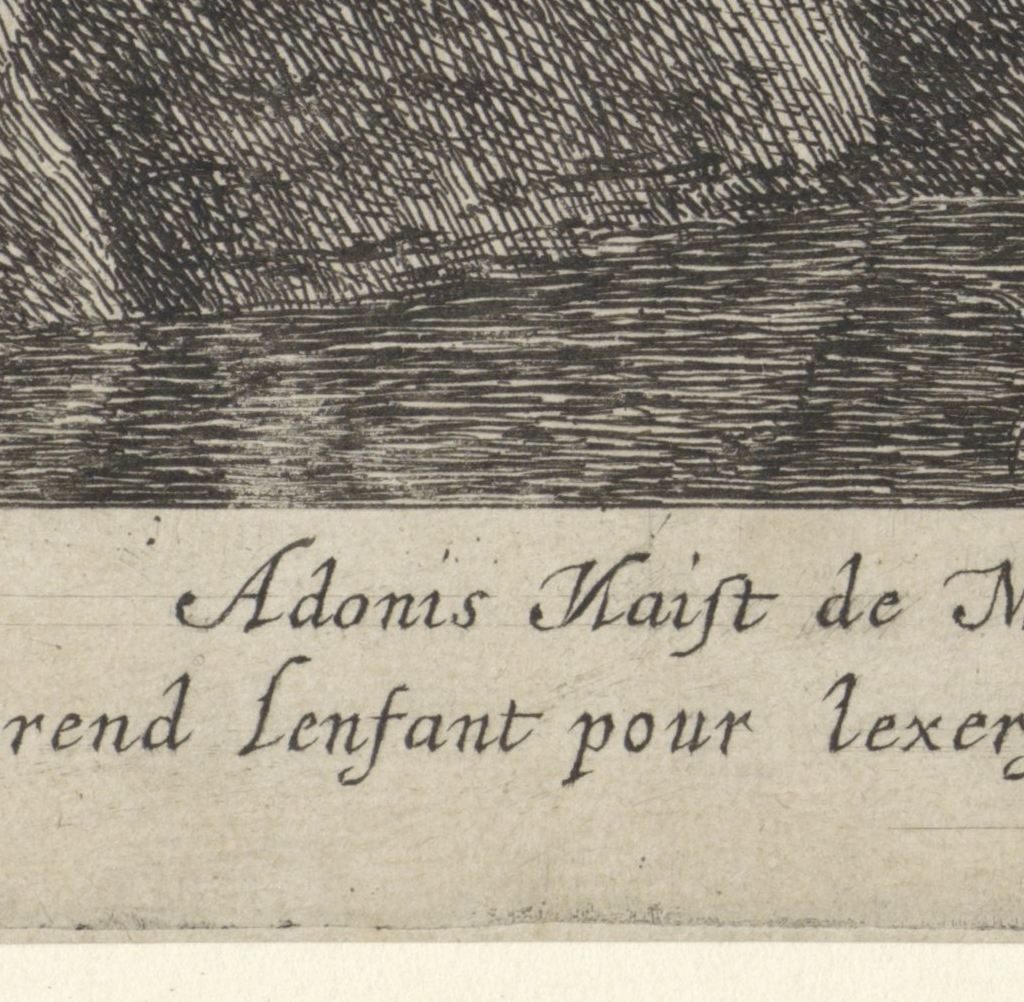 Adonis Naiſt de M
rend Lenfant pour lexer